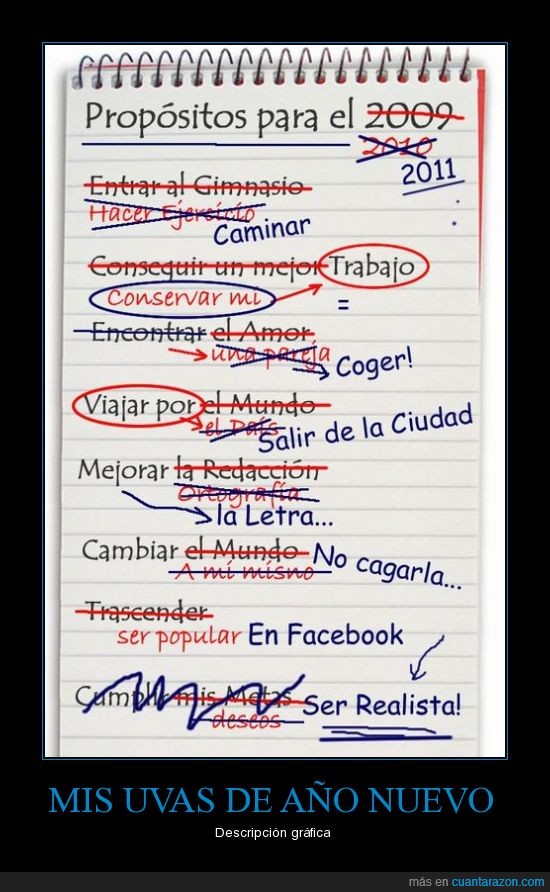 Propósitos para el 2009
2010
2011
Entrar al Gimnasio
Hacer Ejercicio
Caminar
Conseguir un mejor Trabajo
Conservar mi
=
Encontrar el Amor
una pareja
Coger!
Viajar por el Mundo
el País
Salir de la Ciudad
Mejorar la Redacción
Ortografía
la Letra...
Cambiar el Mundo No cagarla...
A mi misno
Trascender
ser popular En Facebook
Cumplir mis Metas Ser Realista!
deseos
MIS UVAS DE AÑO NUEVO
Descripción gráfica
más en cuantarazon.com